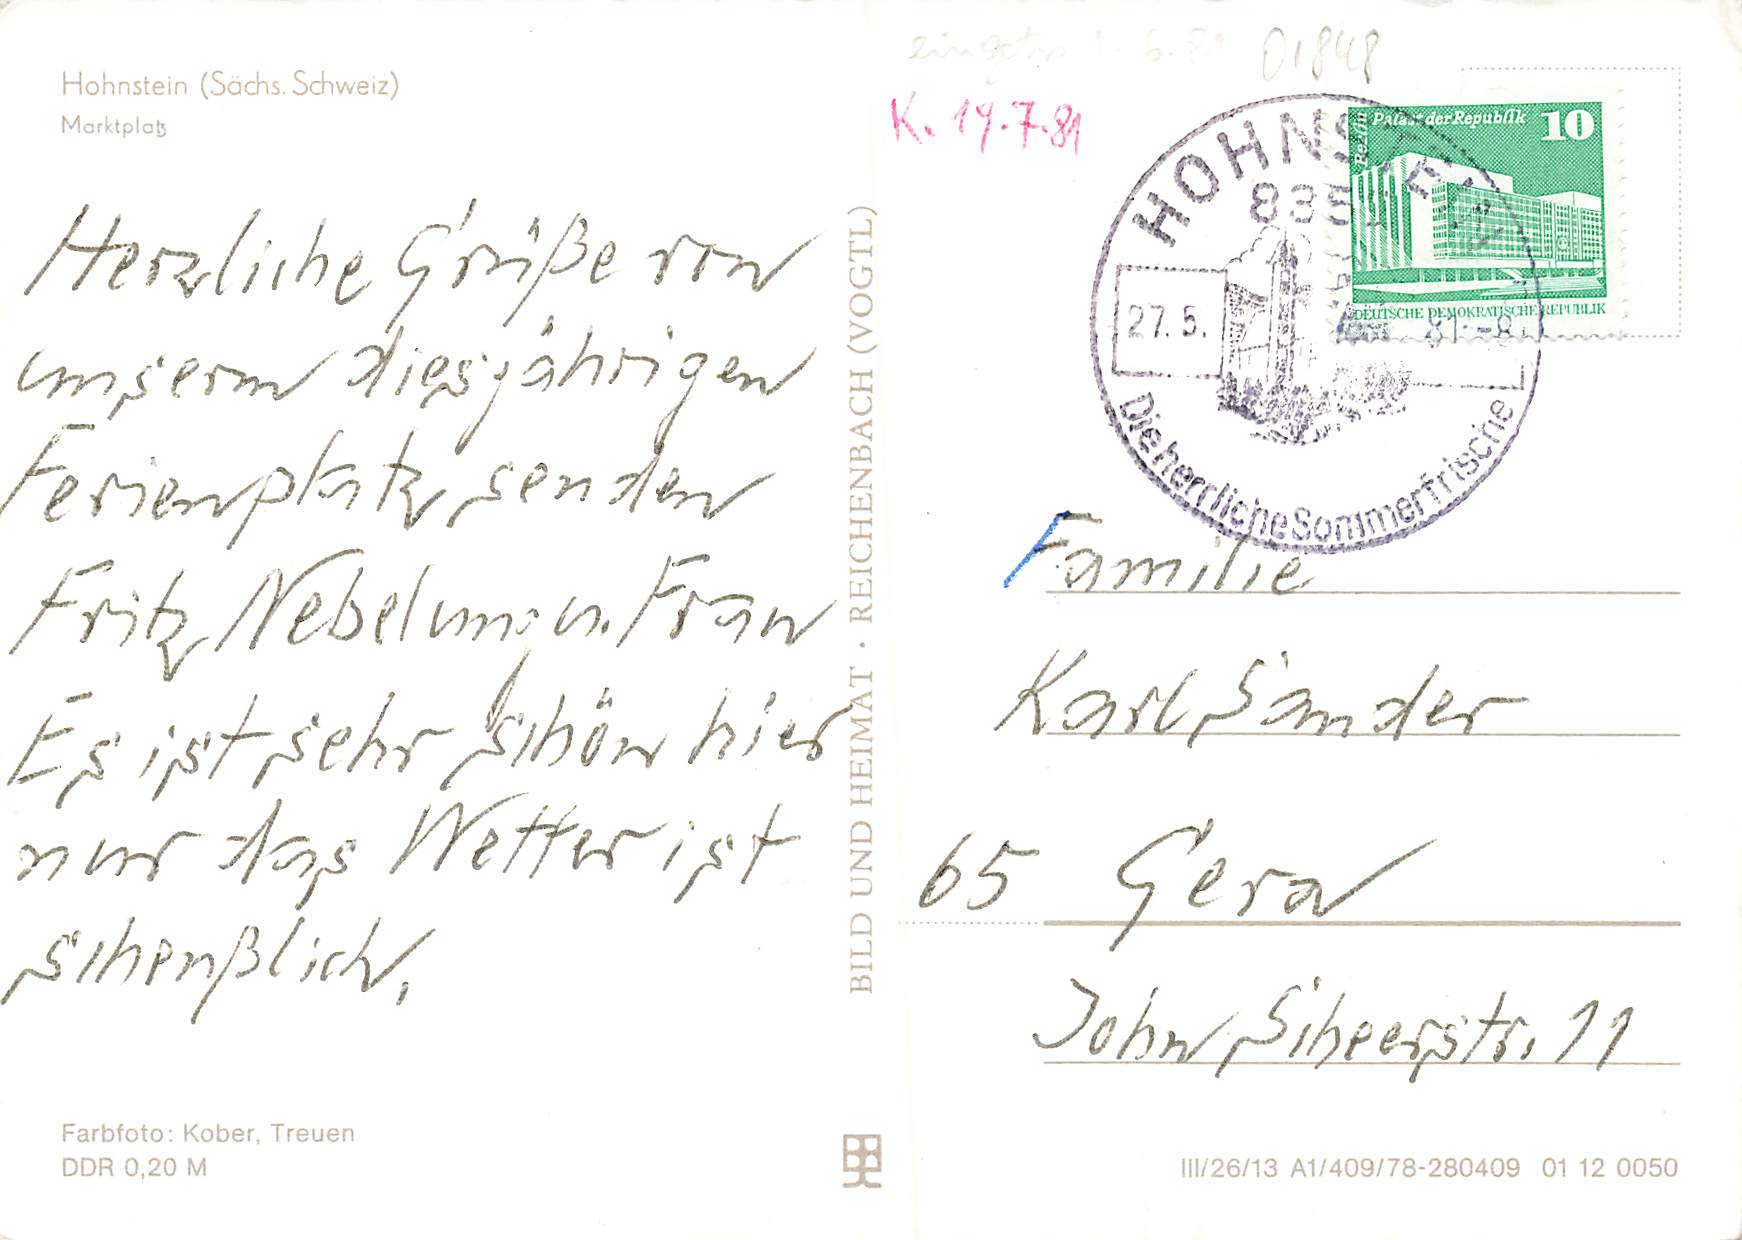 Hohnstein (Sächs. Schweiz)
Marktplatz
Herzliche Grüße von
unserm diesjährigen
Ferienplatz senden
Fritz Nebelung u. Frau
Es ist sehr schön hier
nur das Wetter ist
scheußlich.
Farbfoto: Kober, Treuen
DDR 0,20 M
BILD UND HEIMAT · REICHENBACH (VOGTL)
01848
K. 19.7.81
HOHNSTEIN
27.5.
81-8
Die herrliche Sommerfrische
Berlin
Palast der Republik
10
DEUTSCHE DEMOKRATISCHE REPUBLIK
Familie
Karl Sander
65 Gera
John Scheerstr. 11
III/26/13 A1/409/78-280409 01 12 0050